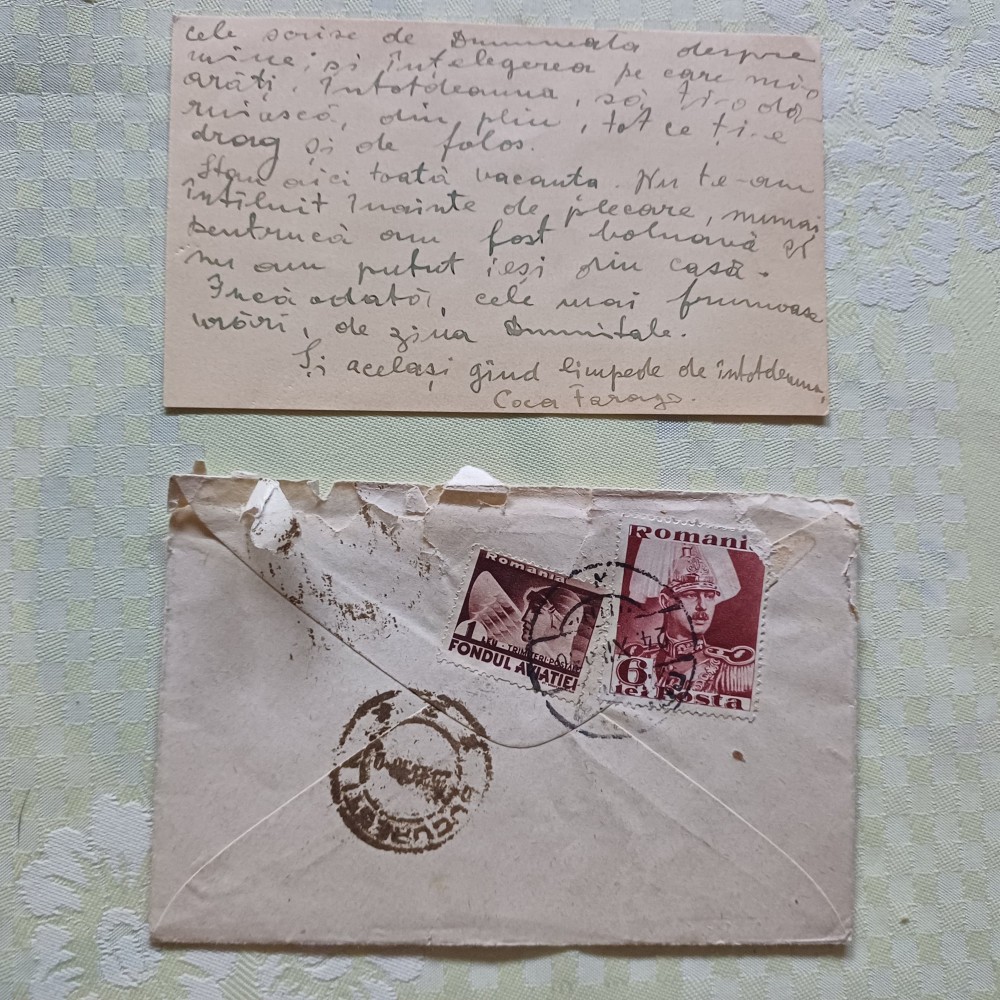 cele scrise de Dumneata despre
mine, și înțelegerea pe care mi-o
arăți. Întotdeauna, să ți-o dă-
ruiască, din plin, tot ce ți-e
drag și de folos.
Stau aici toată vacanta. Nu te-am
întîlnit înainte de plecare, numai
pentrucă am fost bolnavă și
nu am putut ieși din casă.
Încă odată, cele mai frumoase
urări, de ziua Dumitale.
Și același gînd limpede de întotdeauna,
Coca Farago.
Romania
1 LEU - TRIMITERI POSTALE
FONDUL AVIAȚIEI
Romani
6
lei Posta
BUCUREȘTI